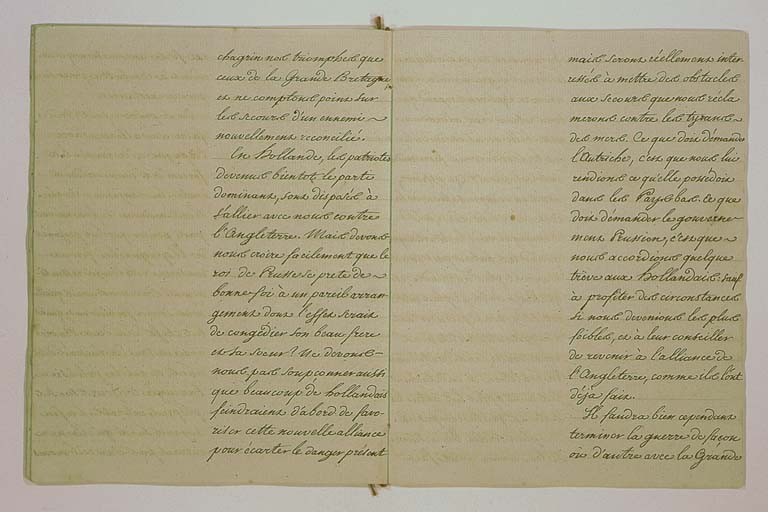 chagrin nos triomphes que
ceux de la Grande Bretagne
et ne comptons point sur
les secours d'un ennemi ~
nouvellement reconcilié.
En hollande, les patriotes
devenus bientot le parti
dominant, sont disposés à
s'allier avec nous contre
l'Angleterre. Mais devons-
nous croire facilement que le
roi de Prusse se prete de ~
bonne foi à un pareil arran-
gement dont l'effet serait
de congédier son beau frere
et sa soeur? Ne devons-
nous pas soupçonner aussi
que beaucoup de hollandais
feindraient d'abord de favo-
riser cette nouvelle alliance
pour écarter le danger présent
mais seront réellement inter
essés à mettre des obstacles
aux secours que nous récla
merons contre les tyrans ~
des mers. Ce que doit démander
l'Autriche, c'est que nous lui
rendions ce qu'elle possédoit
dans les Pays bas. Ce que
doit démander le gouverne-
ment Prussien, c'est que ~
nous accordions quelque
trève aux hollandais: sauf
à profiter des circonstances
si nous devenions les plus
foibles, et à leur conseiller
de revenir à l'alliance de
l'Angleterre, comme ils l'ont
déja fait.
Il faudra bien cependant
terminer la guerre de façon
ou d'autre avec la Grande